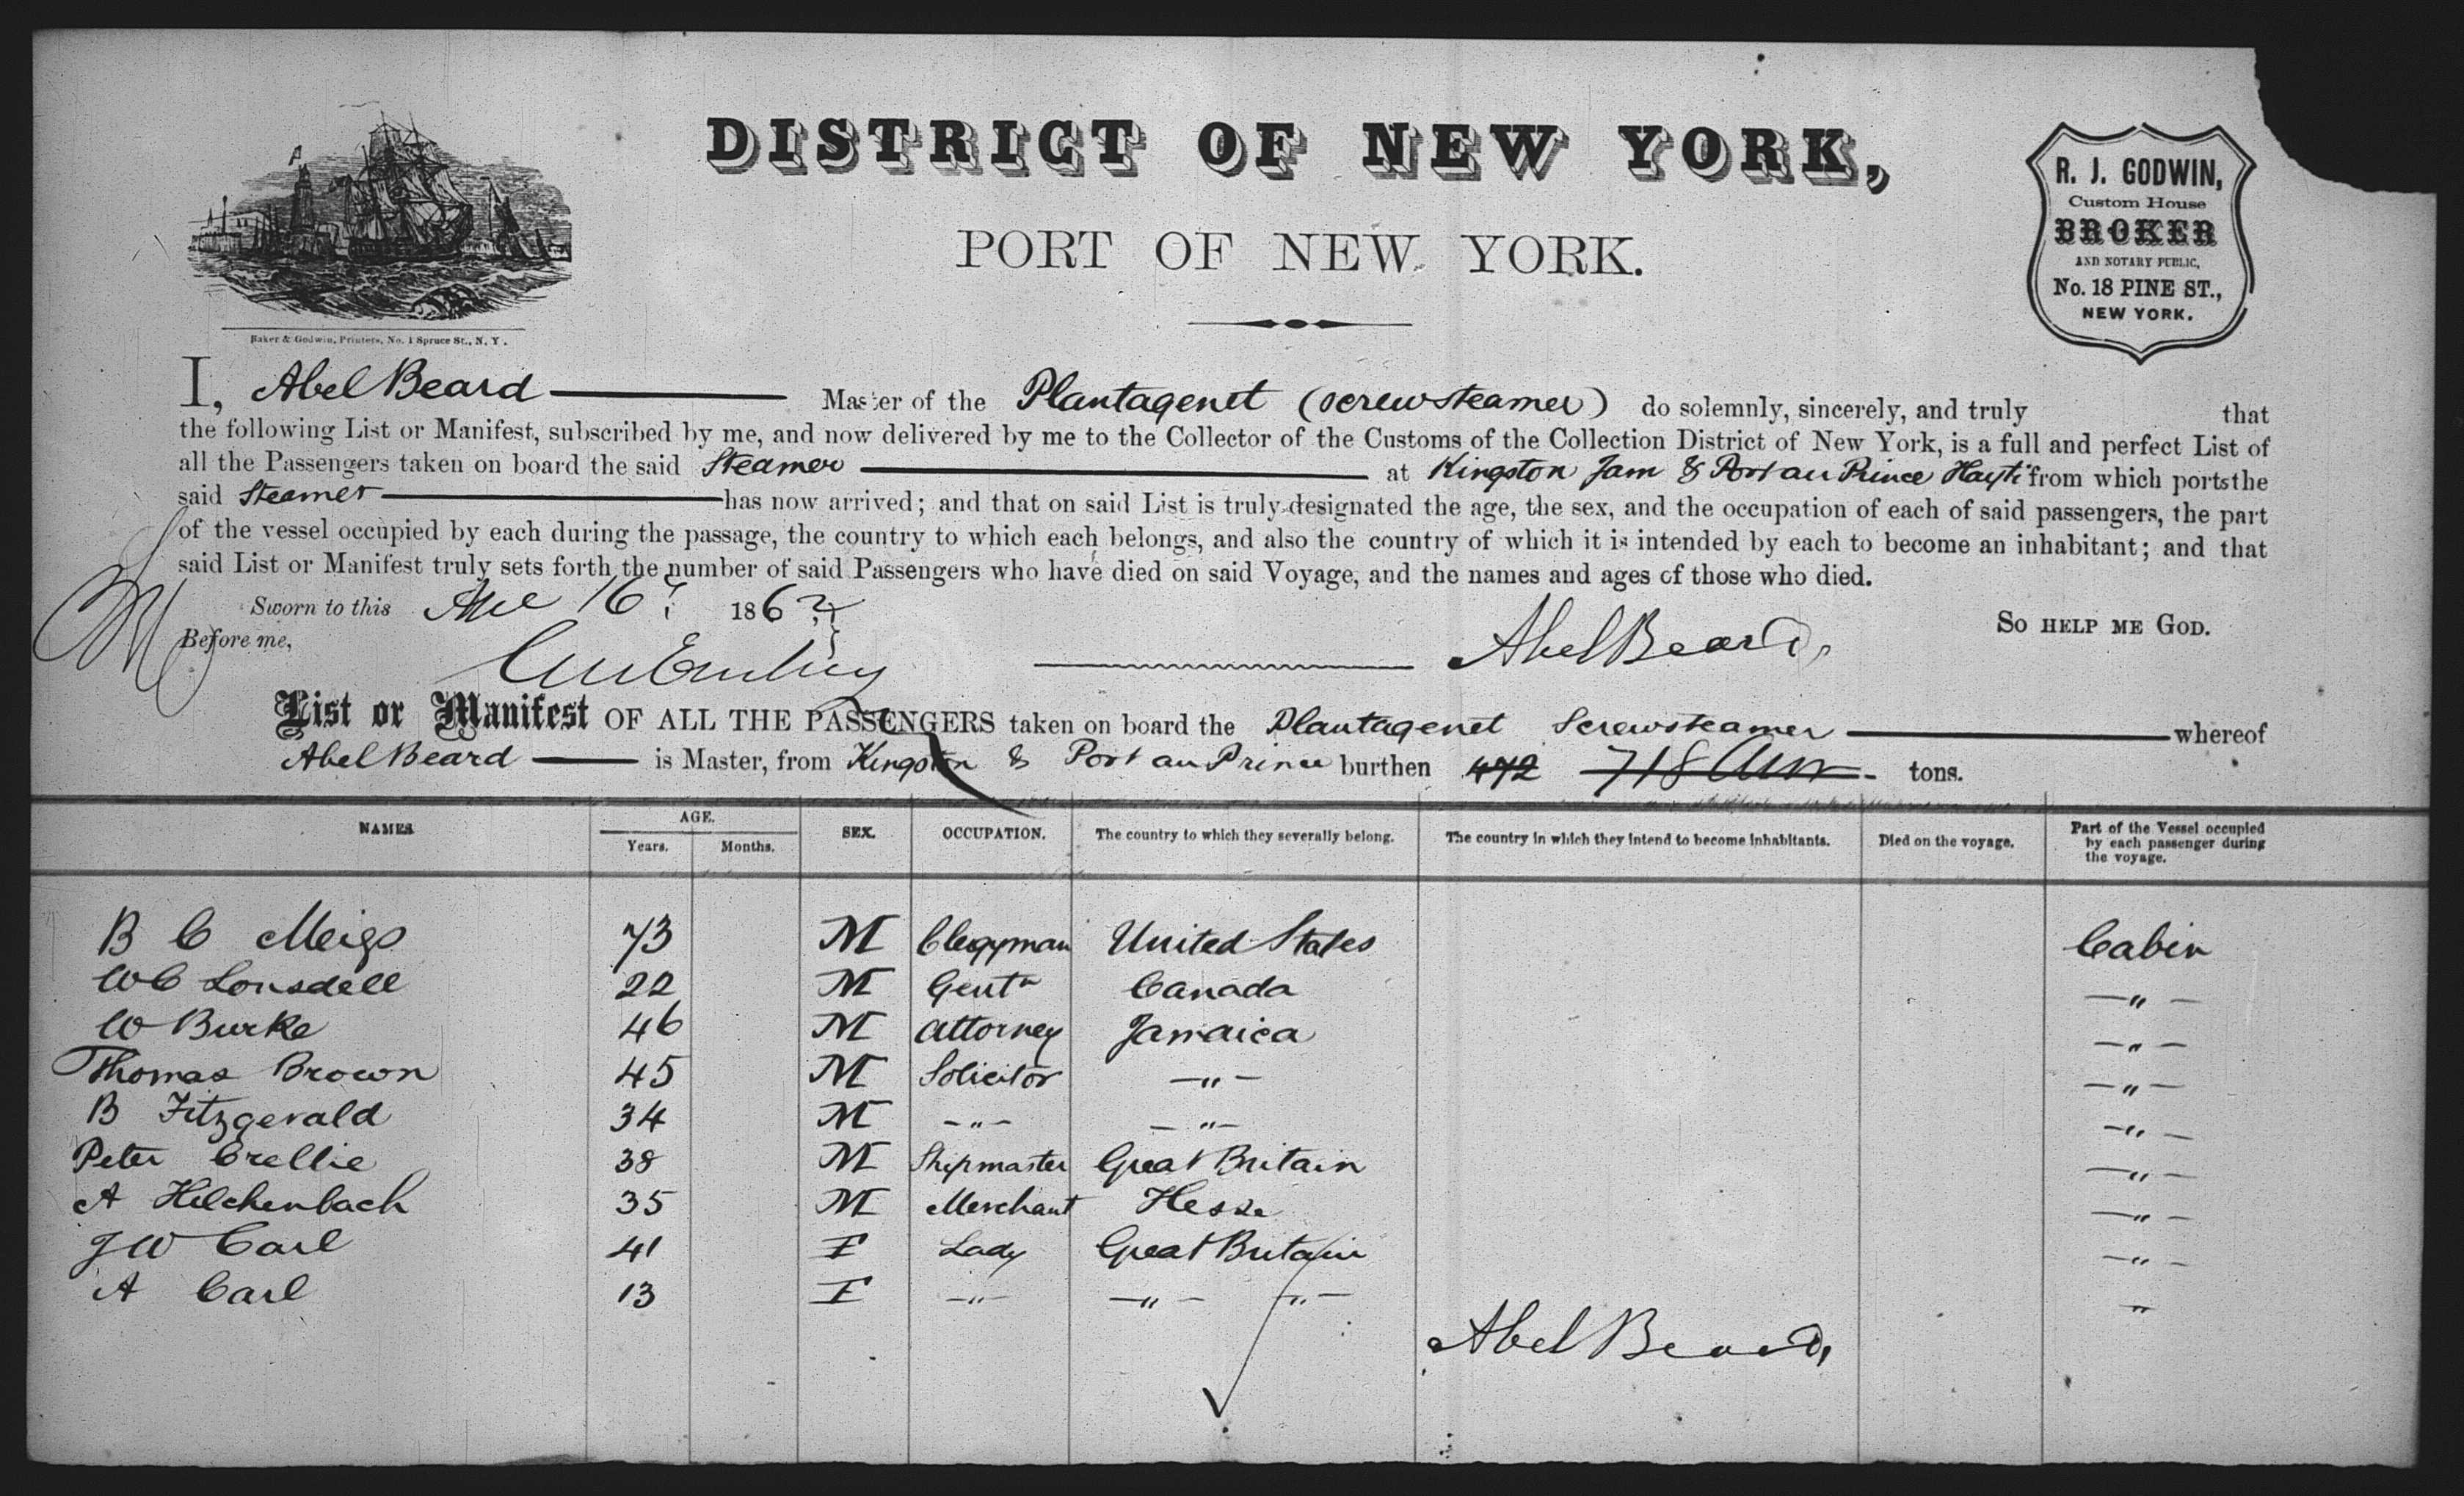 DISTRICT OF NEW YORK,
PORT OF NEW YORK.
R. J. GODWIN,
Custom House
BROKER
AND NOTARY PUBLIC,
No. 18 PINE ST.,
NEW YORK.
Baker & Godwin, Printers, No. 1 Spruce St., N. Y.
I, Abel Beard Master of the Plantagenet (screwsteamer) do solemnly, sincerely, and truly that
the following List or Manifest, subscribed by me, and now delivered by me to the Collector of the Customs of the Collection District of New York, is a full and perfect List of
all the Passengers taken on board the said Steamer at Kingston Jam & Port au Prince Hayti from which ports the
said Steamer has now arrived; and that on said List is truly designated the age, the sex, and the occupation of each of said passengers, the part
of the vessel occupied by each during the passage, the country to which each belongs, and also the country of which it is intended by each to become an inhabitant; and that
said List or Manifest truly sets forth the number of said Passengers who have died on said Voyage, and the names and ages of those who died.
Sworn to this 16 186
So HELP ME GOD.
Before me,
Abel Beard
List or Manifest OF ALL THE PASSENGERS taken on board the Plantagenet Screwsteamer whereof
Abel Beard is Master, from Kingston & Port au Prince burthen 472 718 tons.
NAMES AGE. Years. Months. SEX. OCCUPATION. The country to which they severally belong. The country in which they intend to become inhabitants. Died on the voyage. Part of the Vessel occupied by each passenger during the voyage.
B C Meigs 73 M Clegyman United States Cabin
W C Lonsdell 22 M Gentn Canada -"-
W Burke 46 M Attorney Jamaica -"-
Thomas Brown 45 M Solicitor -"- -"-
B Fitzgerald 34 M -"- -"- -"-
Peter Crellie 38 M Shipmaster Great Britain -"-
A Hilchenbach 35 M Merchant Hesse -"-
J W Carl 41 F Lady Great Britain -"-
A Carl 13 F -"- -"- -"- "
Abel Beard